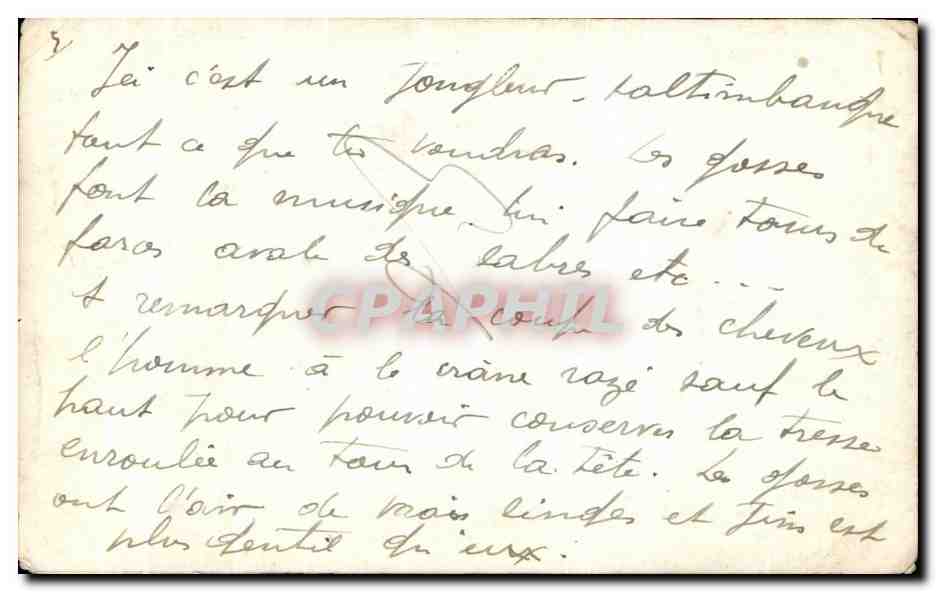 Ici c'est un Jongleur - saltimbanque
tout ce que tu voudras. Les gosses
font la musique, lui faire tours de
farces avale des sabres etc...
A remarquer la coupe des cheveux
l'homme à le crâne razé sauf le
haut pour pouvoir conserver la tresse
enroulée au tour de la tête. Les gosses
ont l'air de vrais singes et Jim est
plus gentil qu'eux.
CPAPHIL